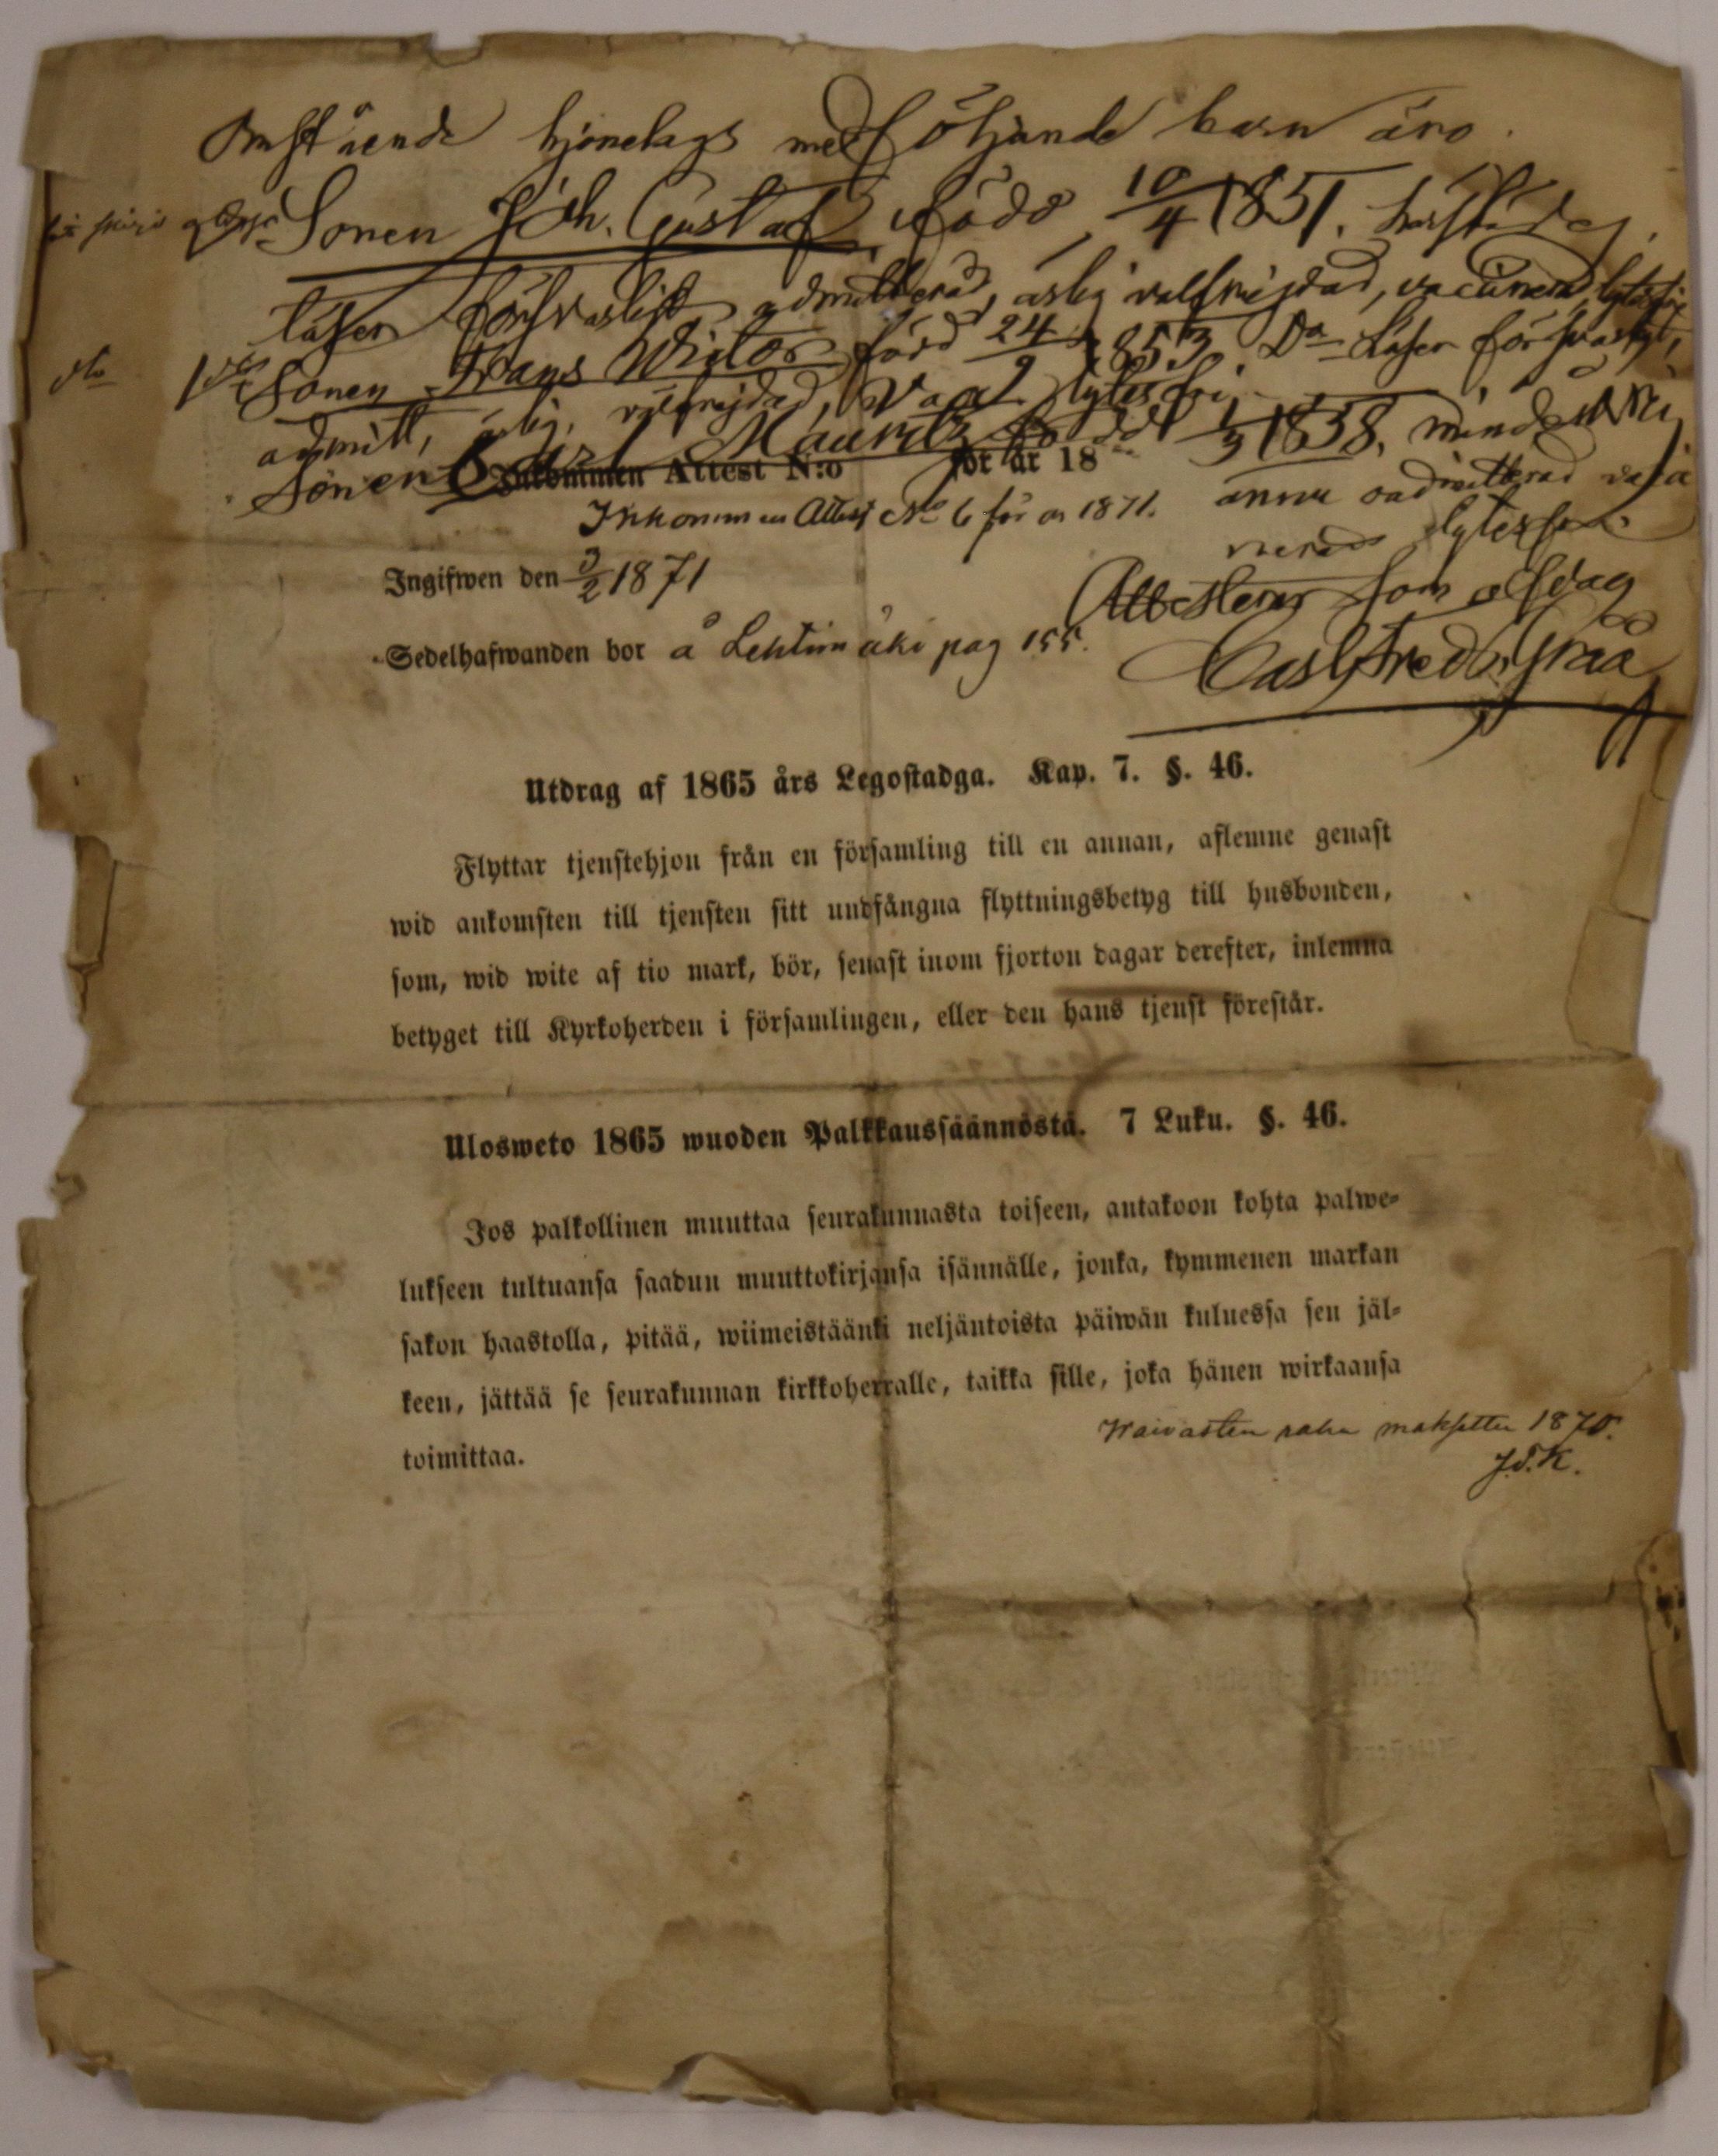 Omstående hjonelags medföljande barn äro.
Sonen Joh. Gustaf född 10/4 1851, härstädes,
läser försvarligt, admitterad, ärlig välfrejdad, vaccinerad, lytesfri
do Sonen Frans Wictor född 24/9 1853. Do Läser försvarligt,
admitt, ärlig, välfrejdad, Vacc. lytesfri
Sonen Carl Mauritz född 1/9 1858,
ännu oadmitterad vacci
nerad lytesfri.
Inkommen Attest N:o för år 18
Inkommen Attest No 6 för år 1871.
Ingifwen den 3/2 1871
Attesterar som ofvan
Sedelhafwanden bor å Lehtimäki pag 155.
Carl Fredr.
Utdrag af 1865 års Legostadga. Kap. 7. §. 46.
Flyttar tjenstehjon från en församling till en annan, aflemne genast
wid ankomsten till tjensten sitt undfångna flyttningsbetyg till husbonden,
som, wid wite af tio mark, bör, senast inom fjorton dagar derefter, inlemna
betyget till Kyrkoherden i församlingen, eller den hans tjenst förestår.
Ulosweto 1865 wuoden Palkkaussäännöstä. 7 Luku. §. 46.
Jos palkollinen muuttaa seurakunnasta toiseen, antakoon kohta palwe-
lukseen tultuansa saadun muuttokirjansa isännälle, jonka, kymmenen markan
sakon haastolla, pitää, wiimeistäänki neljäntoista päiwän kuluessa sen jäl-
keen, jättää se seurakunnan kirkkoherralle, taikka sille, joka hänen wirkaansa
toimittaa.
Waivasten raha maksettu 1870.
J.T.K.